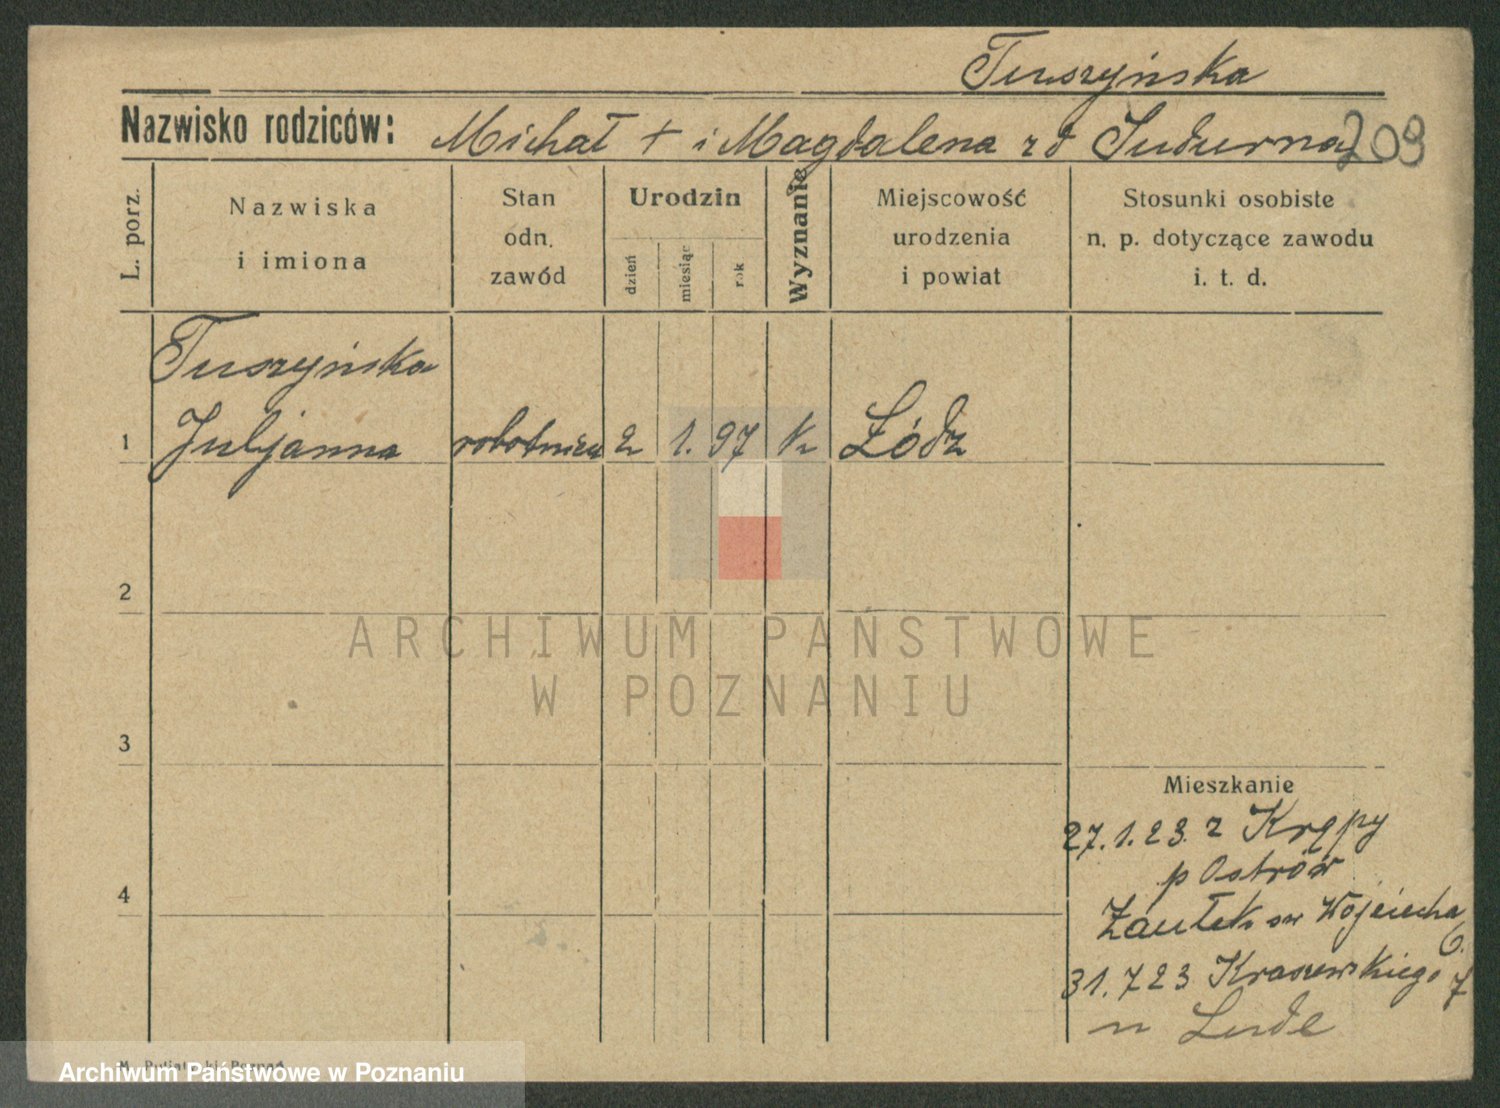 Tuszyńska
Nazwisko rodziców: Michał + i Magdalena zd Sudurna 209
L. porz.
Nazwiska
i imiona
Stan
odn.
zawód
Urodzin
dzień
miesiąc
rok
Wyznanie
Miejscowość
urodzenia
i powiat
Stosunki osobiste
n. p. dotyczące zawodu
i. t. d.
Tuszyńska
1 Juljanna robotnica 2 1. 97 k Łódź
2
ARCHIWUM PAŃSTWOWE
W POZNANIU
3
Mieszkanie
27.1.23. z Krępy
p Ostrów
4
Zaułek św Wojciecha
6.
31.7 23 Kraszewskiego 7
Archiwum Państwowe w Poznaniu